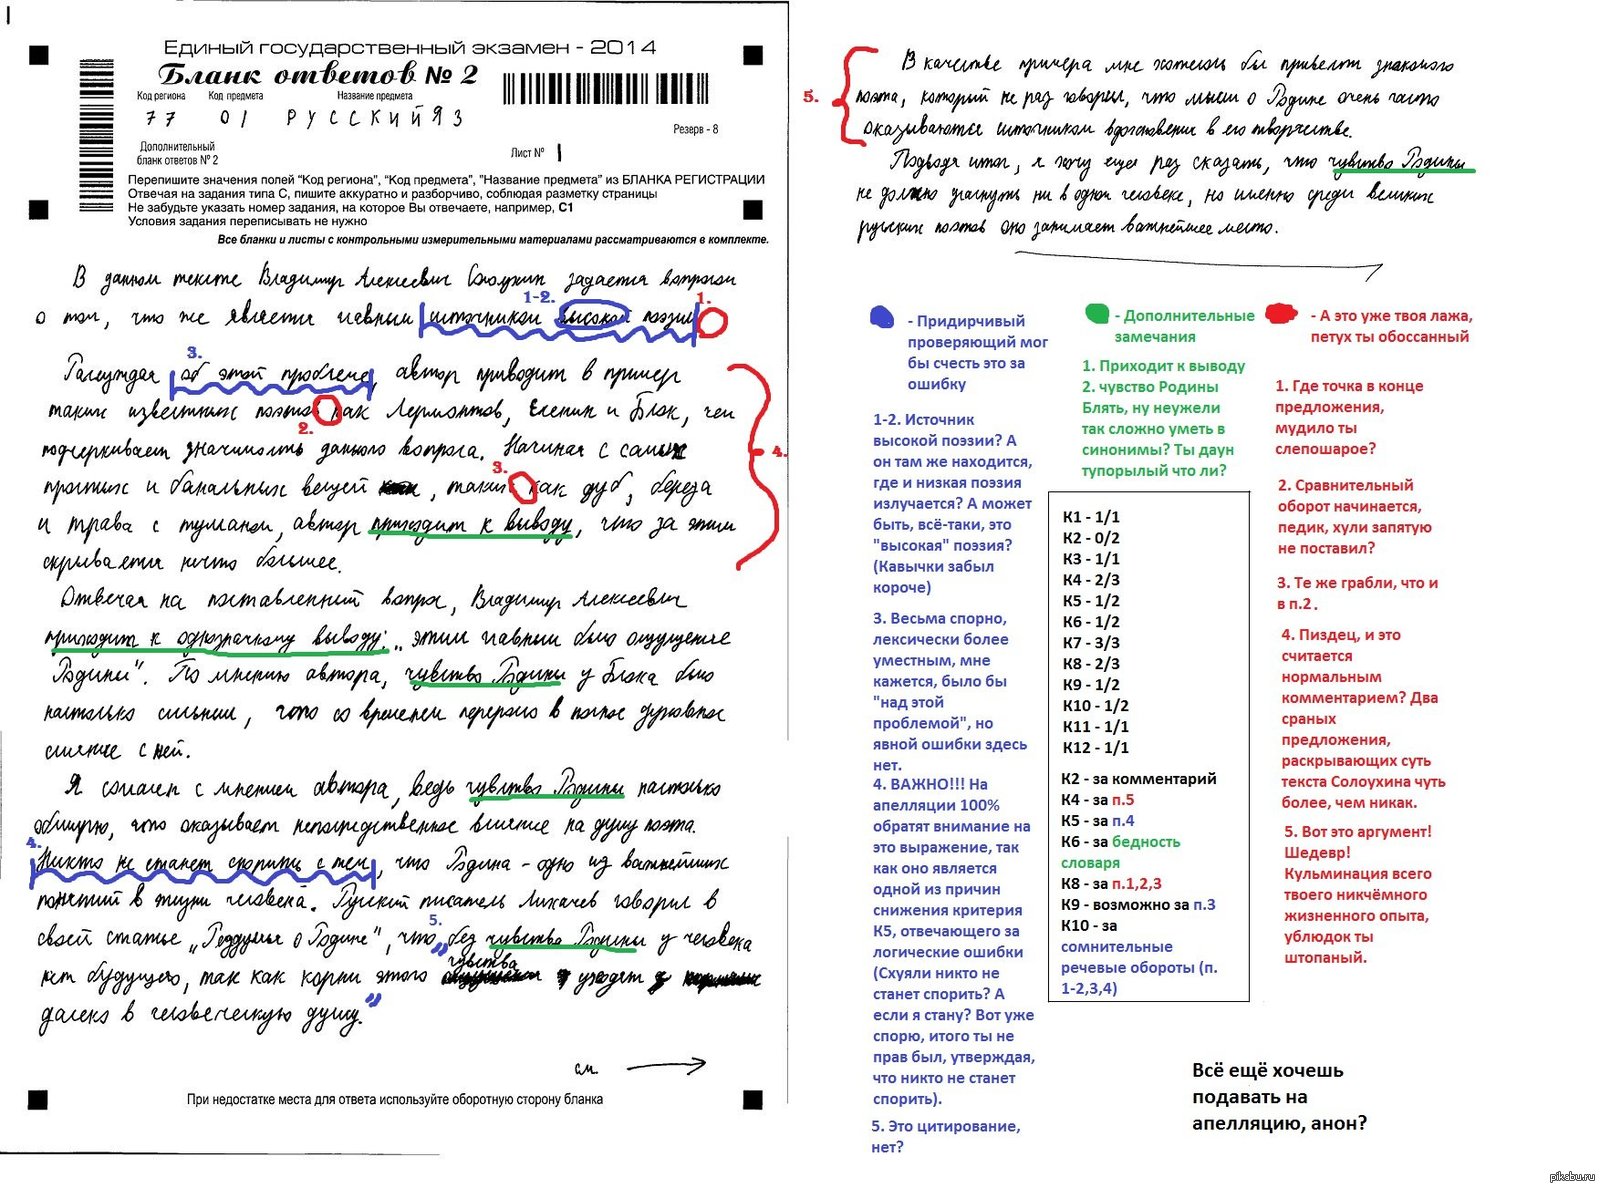 Единый государственный экзамен - 2014
Бланк ответов № 2
Код региона Код предмета Название предмета
77 01 РУССКИЙ ЯЗ
Резерв - 8
Дополнительный
бланк ответов № 2
Лист № 1
Перепишите значения полей "Код региона", "Код предмета", "Название предмета" из БЛАНКА РЕГИСТРАЦИИ
Отвечая на задания типа С, пишите аккуратно и разборчиво, соблюдая разметку страницы
Не забудьте указать номер задания, на которое Вы отвечаете, например, С1
Условия задания переписывать не нужно
Все бланки и листы с контрольными измерительными материалами рассматриваются в комплекте.
В данном тексте Владимир Алексеевич Солоухин задается вопросом
1-2. 1.
о том, что же является главным источником высокой поэзии
3.
Рассуждая об этой проблеме, автор приводит в пример
таких известных поэтов как Лермонтов, Есенин и Блок, чем
2. 4.
подчеркивает значимость данного вопроса. Начиная с самых
3.
простых и банальных вещей, таких как дуб, береза
и трава с туманом, автор приходит к выводу, что за этим
скрывается нечто большее.
Отвечая на поставленный вопрос, Владимир Алексеевич
приходит к однозначному выводу: „этим главным было ощущение
Родины". По мнению автора, чувство Родины у Блока было
настолько сильным, что со временем переросло в полное духовное
слияние с ней.
Я согласен с мнением автора, ведь чувство Родины настолько
обширно, что оказывает непосредственное влияние на душу поэта.
4.
Никто не станет спорить с тем, что Родина - одно из важнейших
понятий в жизни человека. Русский писатель Лихачев говорил в
5.
своей статье „Раздумья о Родине", что „без чувства Родины у человека
чувства
нет будущего, так как корни этого уходят
далеко в человеческую душу."
см.
При недостатке места для ответа используйте оборотную сторону бланка
В качестве примера мне хотелось бы привести знакомого
5.
поэта, который не раз говорил, что мысли о Родине очень часто
оказываются источником вдохновения в его творчестве.
Подводя итог, я хочу еще раз сказать, что чувство Родины
не должно угаснуть ни в одном человеке, но именно среди великих
русских поэтов оно занимает важнейшее место.
- Придирчивый
проверяющий мог
бы счесть это за
ошибку
1-2. Источник
высокой поэзии? А
он там же находится,
где и низкая поэзия
излучается? А может
быть, всё-таки, это
"высокая" поэзия?
(Кавычки забыл
короче)
3. Весьма спорно,
лексически более
уместным, мне
кажется, было бы
"над этой
проблемой", но
явной ошибки здесь
нет.
4. ВАЖНО!!! На
апелляции 100%
обратят внимание на
это выражение, так
как оно является
одной из причин
снижения критерия
К5, отвечающего за
логические ошибки
(Схуяли никто не
станет спорить? А
если я стану? Вот уже
спорю, итого ты не
прав был, утверждая,
что никто не станет
спорить).
5. Это цитирование,
нет?
- Дополнительные
замечания
1. Приходит к выводу
2. чувство Родины
Блять, ну неужели
так сложно уметь в
синонимы? Ты даун
тупорылый что ли?
К1 - 1/1
К2 - 0/2
К3 - 1/1
К4 - 2/3
К5 - 1/2
К6 - 1/2
К7 - 3/3
К8 - 2/3
К9 - 1/2
К10 - 1/2
К11 - 1/1
К12 - 1/1
К2 - за комментарий
К4 - за п.5
К5 - за п.4
К6 - за бедность
словаря
К8 - за п.1,2,3
К9 - возможно за п.3
К10 - за
сомнительные
речевые обороты (п.
1-2,3,4)
- А это уже твоя лажа,
петух ты обоссанный
1. Где точка в конце
предложения,
мудило ты
слепошарое?
2. Сравнительный
оборот начинается,
педик, хули запятую
не поставил?
3. Те же грабли, что и
в п.2.
4. Пиздец, и это
считается
нормальным
комментарием? Два
сраных
предложения,
раскрывающих суть
текста Солоухина чуть
более, чем никак.
5. Вот это аргумент!
Шедевр!
Кульминация всего
твоего никчёмного
жизненного опыта,
ублюдок ты
штопаный.
Всё ещё хочешь
подавать на
апелляцию, анон?
pikabu.ru